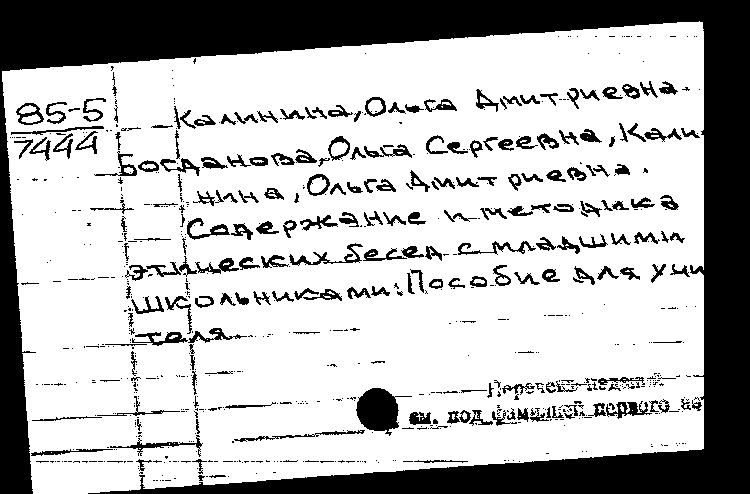 85-5
7444
Калинина, Ольга Дмитриевна.
Богданова, Ольга Сергеевна, Кали-
нина, Ольга Дмитриевна.
Содержание и методика
этических бесед с младшими
школьниками: Пособие для учи
теля.
Перечень изданий
см. под фамилией первого ав